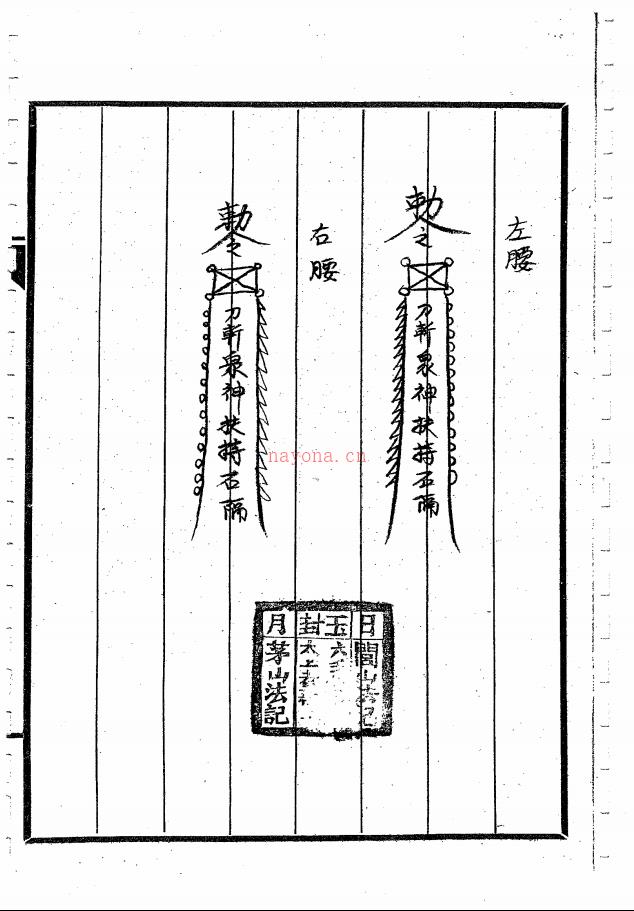 左腰
勅令
刀斬衆神扶持石隔
右腰
勅令
刀斬衆神扶持右隔
日 玉 封 月
閭山法記
太上老
茅山法記
nayona.cn